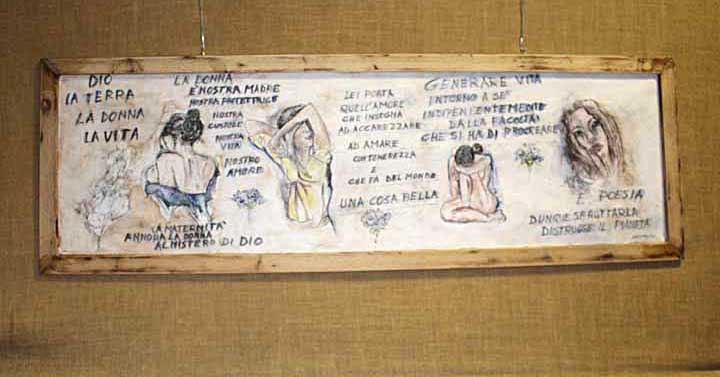 DIO
LA TERRA
LA DONNA
LA VITA
LA DONNA
È NOSTRA MADRE
NOSTRA PROTETTRICE
NOSTRA
CUSTODE
NOSTRA
VITA
NOSTRO
AMORE
LA MATERNITA'
ANNODA LA DONNA
AL MISTERO DI DIO
LEI PORTA
QUELL'AMORE
CHE INSEGNA
AD ACCAREZZARE
AD AMARE
CON TENEREZZA
E
CHE FA DEL MONDO
UNA COSA BELLA
GENERARE VITA
INTORNO A SE'
INDIPENDENTEMENTE
DALLA FACOLTA'
CHE SI HA DI PROCREARE
E' POESIA
DUNQUE SFRUTTARLA
DISTRUGGE IL PIANETA